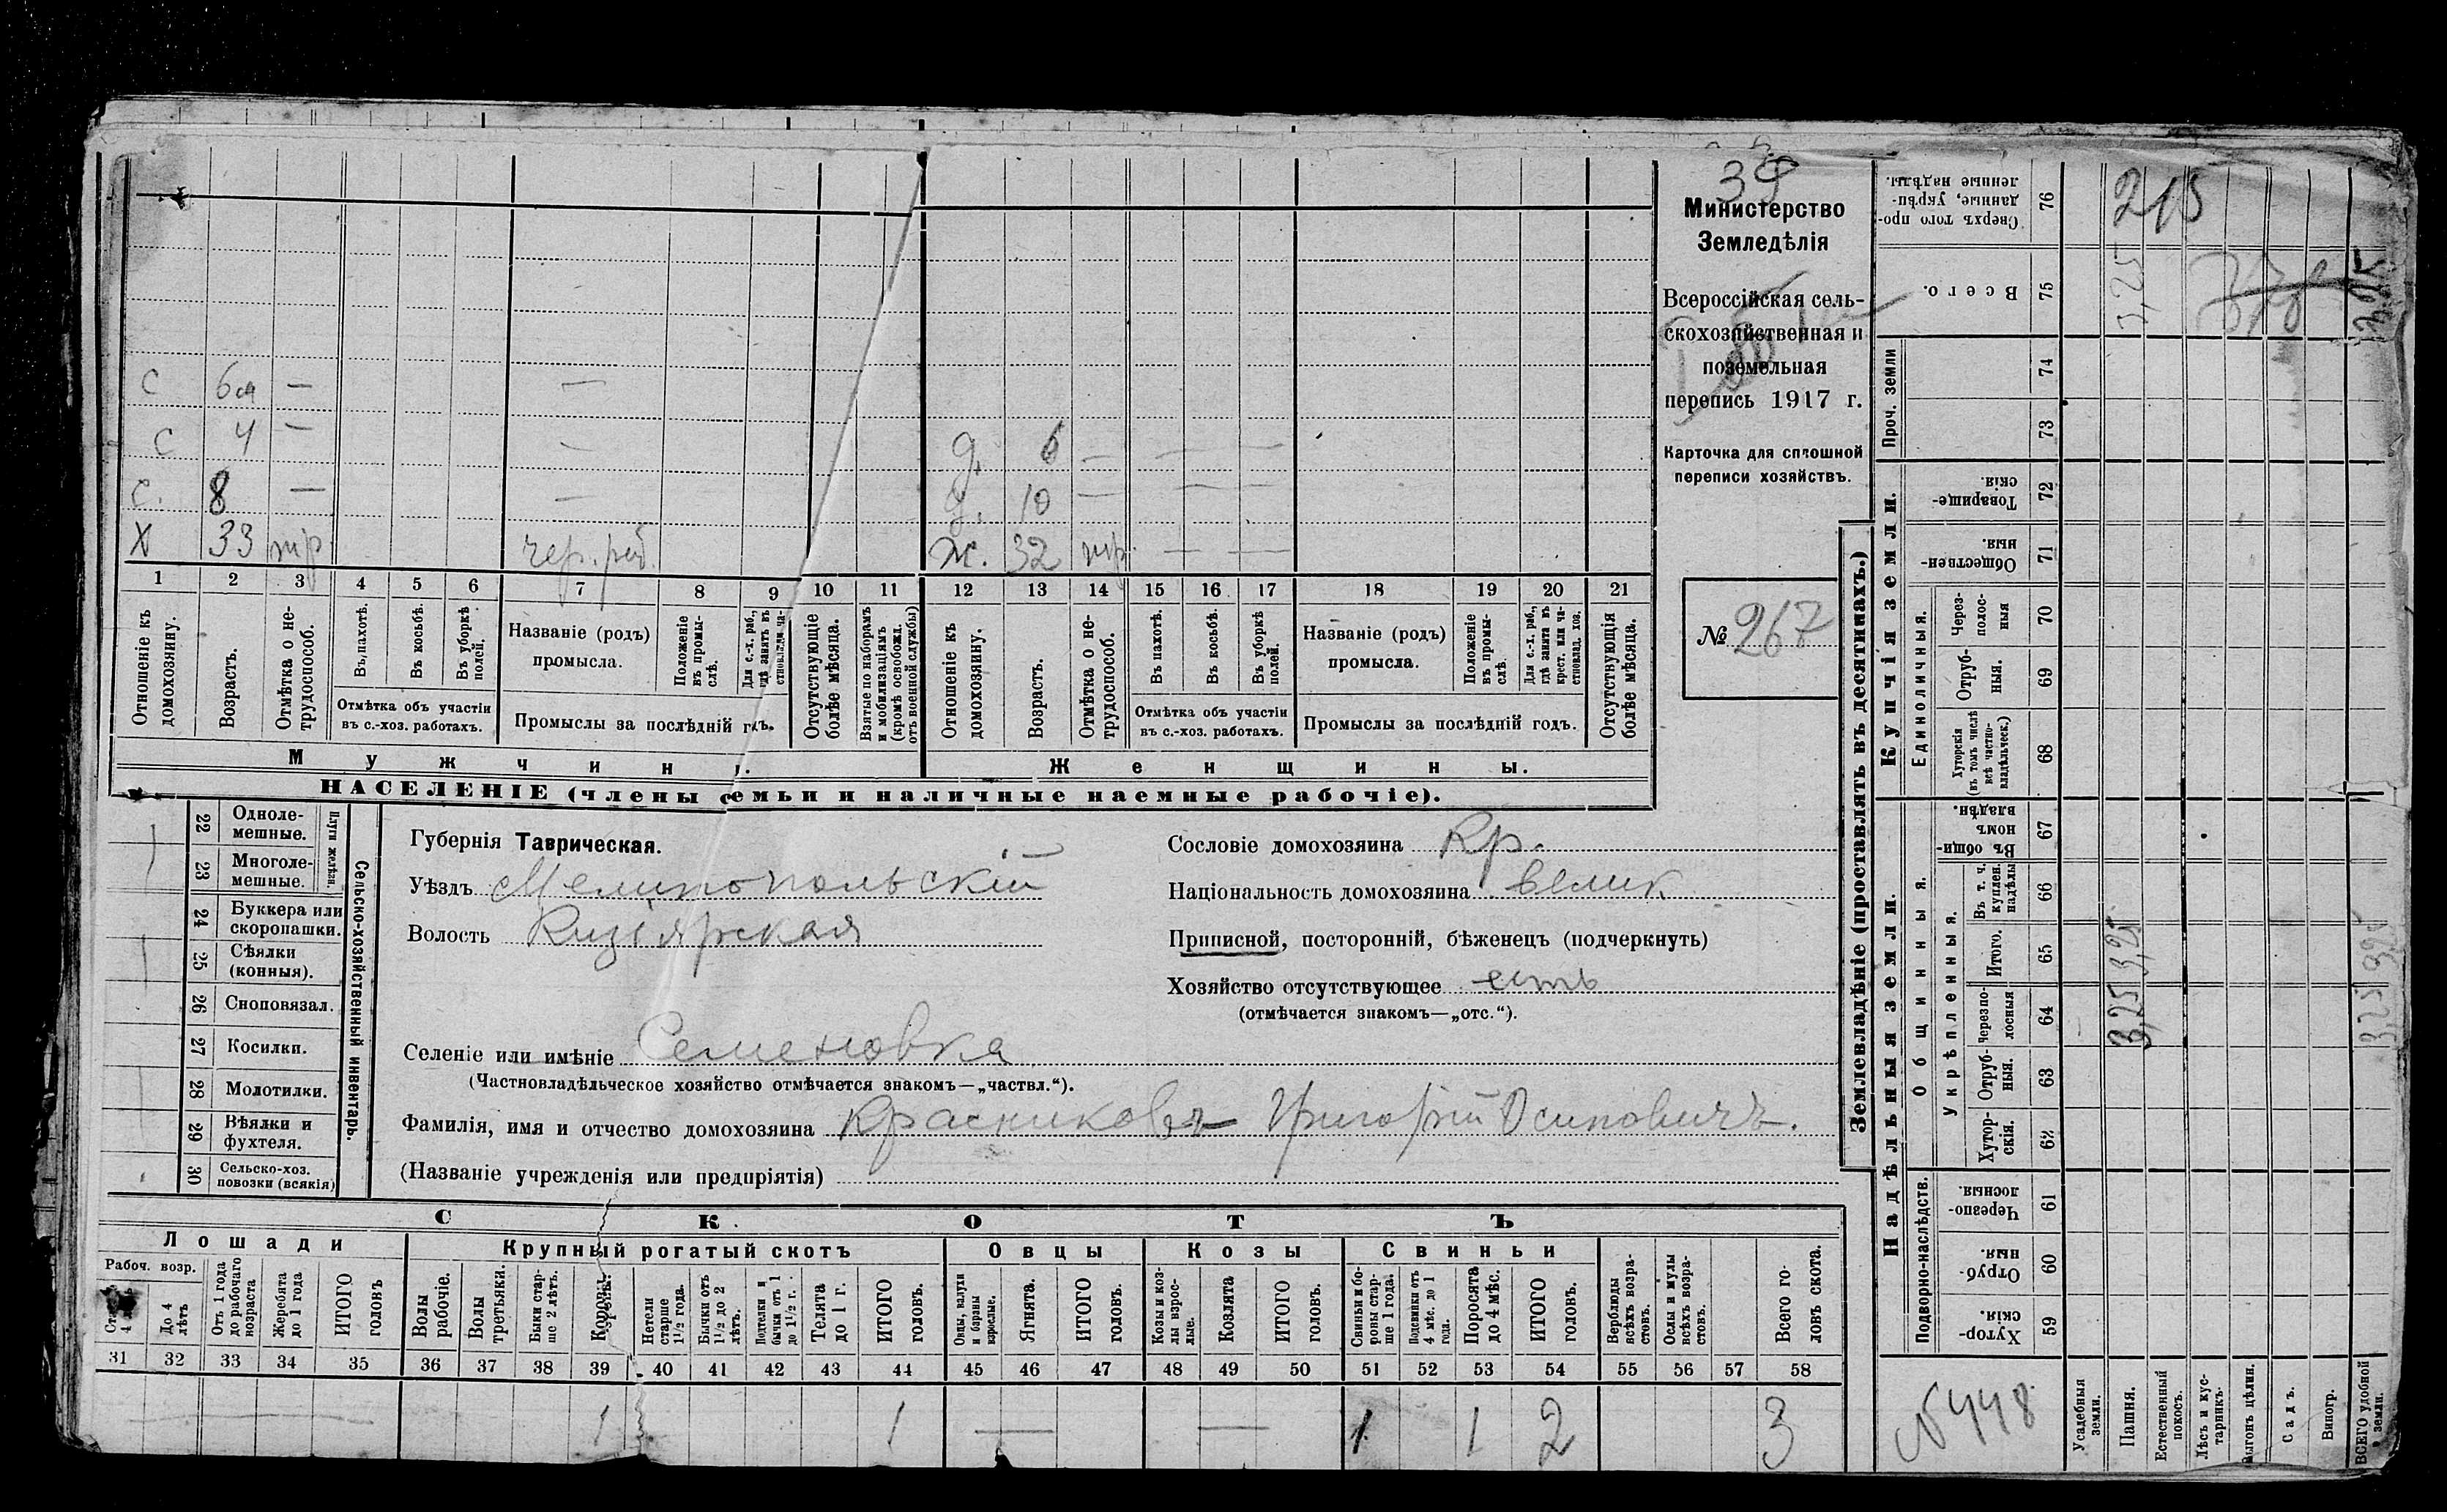 39
Министерство
Земледѣлія
Всероссійская сель-
скохозяйственная и
поземельная
перепись 1917 г.
Карточка для сплошной
переписи хозяйствъ.
№ 267
с 6 м —  —
с 4 —  —
с. 8 —  —
Х 33 тр. чер. раб.
д. 6 — — —
д. 10 — — —
ж. 32 тр. — —
1 2 3 4 5 6 7 8 9 10 11 12 13 14 15 16 17 18 19 20 21
Отношеніе къ домохозяину.
Возрастъ.
Отмѣтка о не-трудоспособ.
Въ пахотѣ.
Въ косьбѣ.
Въ уборкѣ полей.
Отмѣтка объ участіи
въ с.-хоз. работахъ.
Названіе (родъ)
промысла.
Положеніе въ промы-слѣ.
Для с.-х. раб., гдѣ занятъ въ
Промыслы за послѣдній годъ.
Отсутствующіе болѣе мѣсяца.
Взятые по наборамъ и мобилизаціямъ (кромѣ освобожд. отъ военной службы)
Отношеніе къ домохозяину.
Возрастъ.
Отмѣтка о не-трудоспособ.
Въ пахотѣ.
Въ косьбѣ.
Въ уборкѣ полей.
Отмѣтка объ участіи
въ с.-хоз. работахъ.
Названіе (родъ)
промысла.
Положеніе въ промы-слѣ.
Для с.-х. раб., гдѣ занята въ крест. или ча-стновлад. хоз.
Промыслы за послѣдній годъ.
Отсутствующія болѣе мѣсяца.
Мужчины.
Женщины.
НАСЕЛЕНІЕ (члены семьи и наличные наемные рабочіе).
22 Одноле-мешные.
23 Многоле-мешные.
Плуги желѣзн.
24 Буккера или скоропашки.
25 Сѣялки (конныя).
26 Сноповязал.
27 Косилки.
28 Молотилки.
29 Вѣялки и фухтеля.
30 Сельско-хоз. повозки (всякія)
Сельско-хозяйственный инвентарь.
Губернія Таврическая.
Уѣздъ Мелитопольскій
Волость Кизіярская
Сословіе домохозяина Кр.
Національность домохозяина велик
Приписной, посторонній, бѣженецъ (подчеркнуть)
Хозяйство отсутствующее есть
(отмѣчается знакомъ—„отс.“).
Селеніе или имѣніе Семеновка
(Частновладѣльческое хозяйство отмѣчается знакомъ—„частвл.“).
Фамилія, имя и отчество домохозяина Красниковъ Григорій Осиповичъ.
(Названіе учрежденія или предпріятія)
СКОТЪ
Лошади
Крупный рогатый скотъ
Овцы
Козы
Свиньи
Рабоч. возр.
До 4 лѣтъ
Отъ 1 года до рабочаго возраста
Жеребята до 1 года
ИТОГО головъ
Волы рабочіе.
Волы третьяки.
Быки стар-ше 2 лѣтъ.
Коровы.
Нетели старше 1½ года.
Бычки отъ 1½ до 2 лѣтъ.
Подтелки и бычки отъ 1 до 1½ г.
Телята до 1 г.
ИТОГО головъ.
Овцы, валухи и бараны взрослые.
Ягнята.
ИТОГО головъ.
Козы и коз-лы взрос-лые.
Козлята
ИТОГО головъ.
Свиньи и бо-ровы стар-ше 1 года.
Подсвинки отъ 4 мѣс. до 1 года.
Поросята до 4 мѣс.
ИТОГО головъ.
Верблюды всѣхъ возра-стовъ.
Ослы и мулы всѣхъ возра-стовъ.
Всего го-ловъ скота.
31 32 33 34 35 36 37 38 39 40 41 42 43 44 45 46 47 48 49 50 51 52 53 54 55 56 57 58
— 1 1 — — 1 1 2 3
Землевладѣніе (проставлять въ десятинахъ.)
Купчія земли.
Надѣльныя земли.
Сверхъ того про-данные, укрѣп-ленные надѣлы. 76
Всего. 75
Проч. земли 74
73
Товарище-скія. 72
Обществен-ныя. 71
Единоличныя.
Через-полос-ныя 70
Отруб-ныя. 69
Хуторскія (въ томъ числѣ всѣ частно-владѣльческ.) 68
Въ общин-номъ владѣн. 67
Общинныя.
Укрѣпленныя.
Въ т. ч. куплен. надѣлы 66
Итого. 65
Черезпо-лосныя 64
Отруб-ныя. 63
Хутор-скія. 62
Подворно-наслѣдств.
Черезпо-лосныя. 61
Отруб-ныя. 60
Хутор-скія. 59
215
3,25
3,25
3,25 3,25
3,25 3,25
№ 448
Усадебныя земли.
Пашня.
Естественный покосъ.
Лѣсъ и кус-тарникъ.
Выгонъ цѣлин.
Садъ.
Виногр.
ВСЕГО удобной земли.